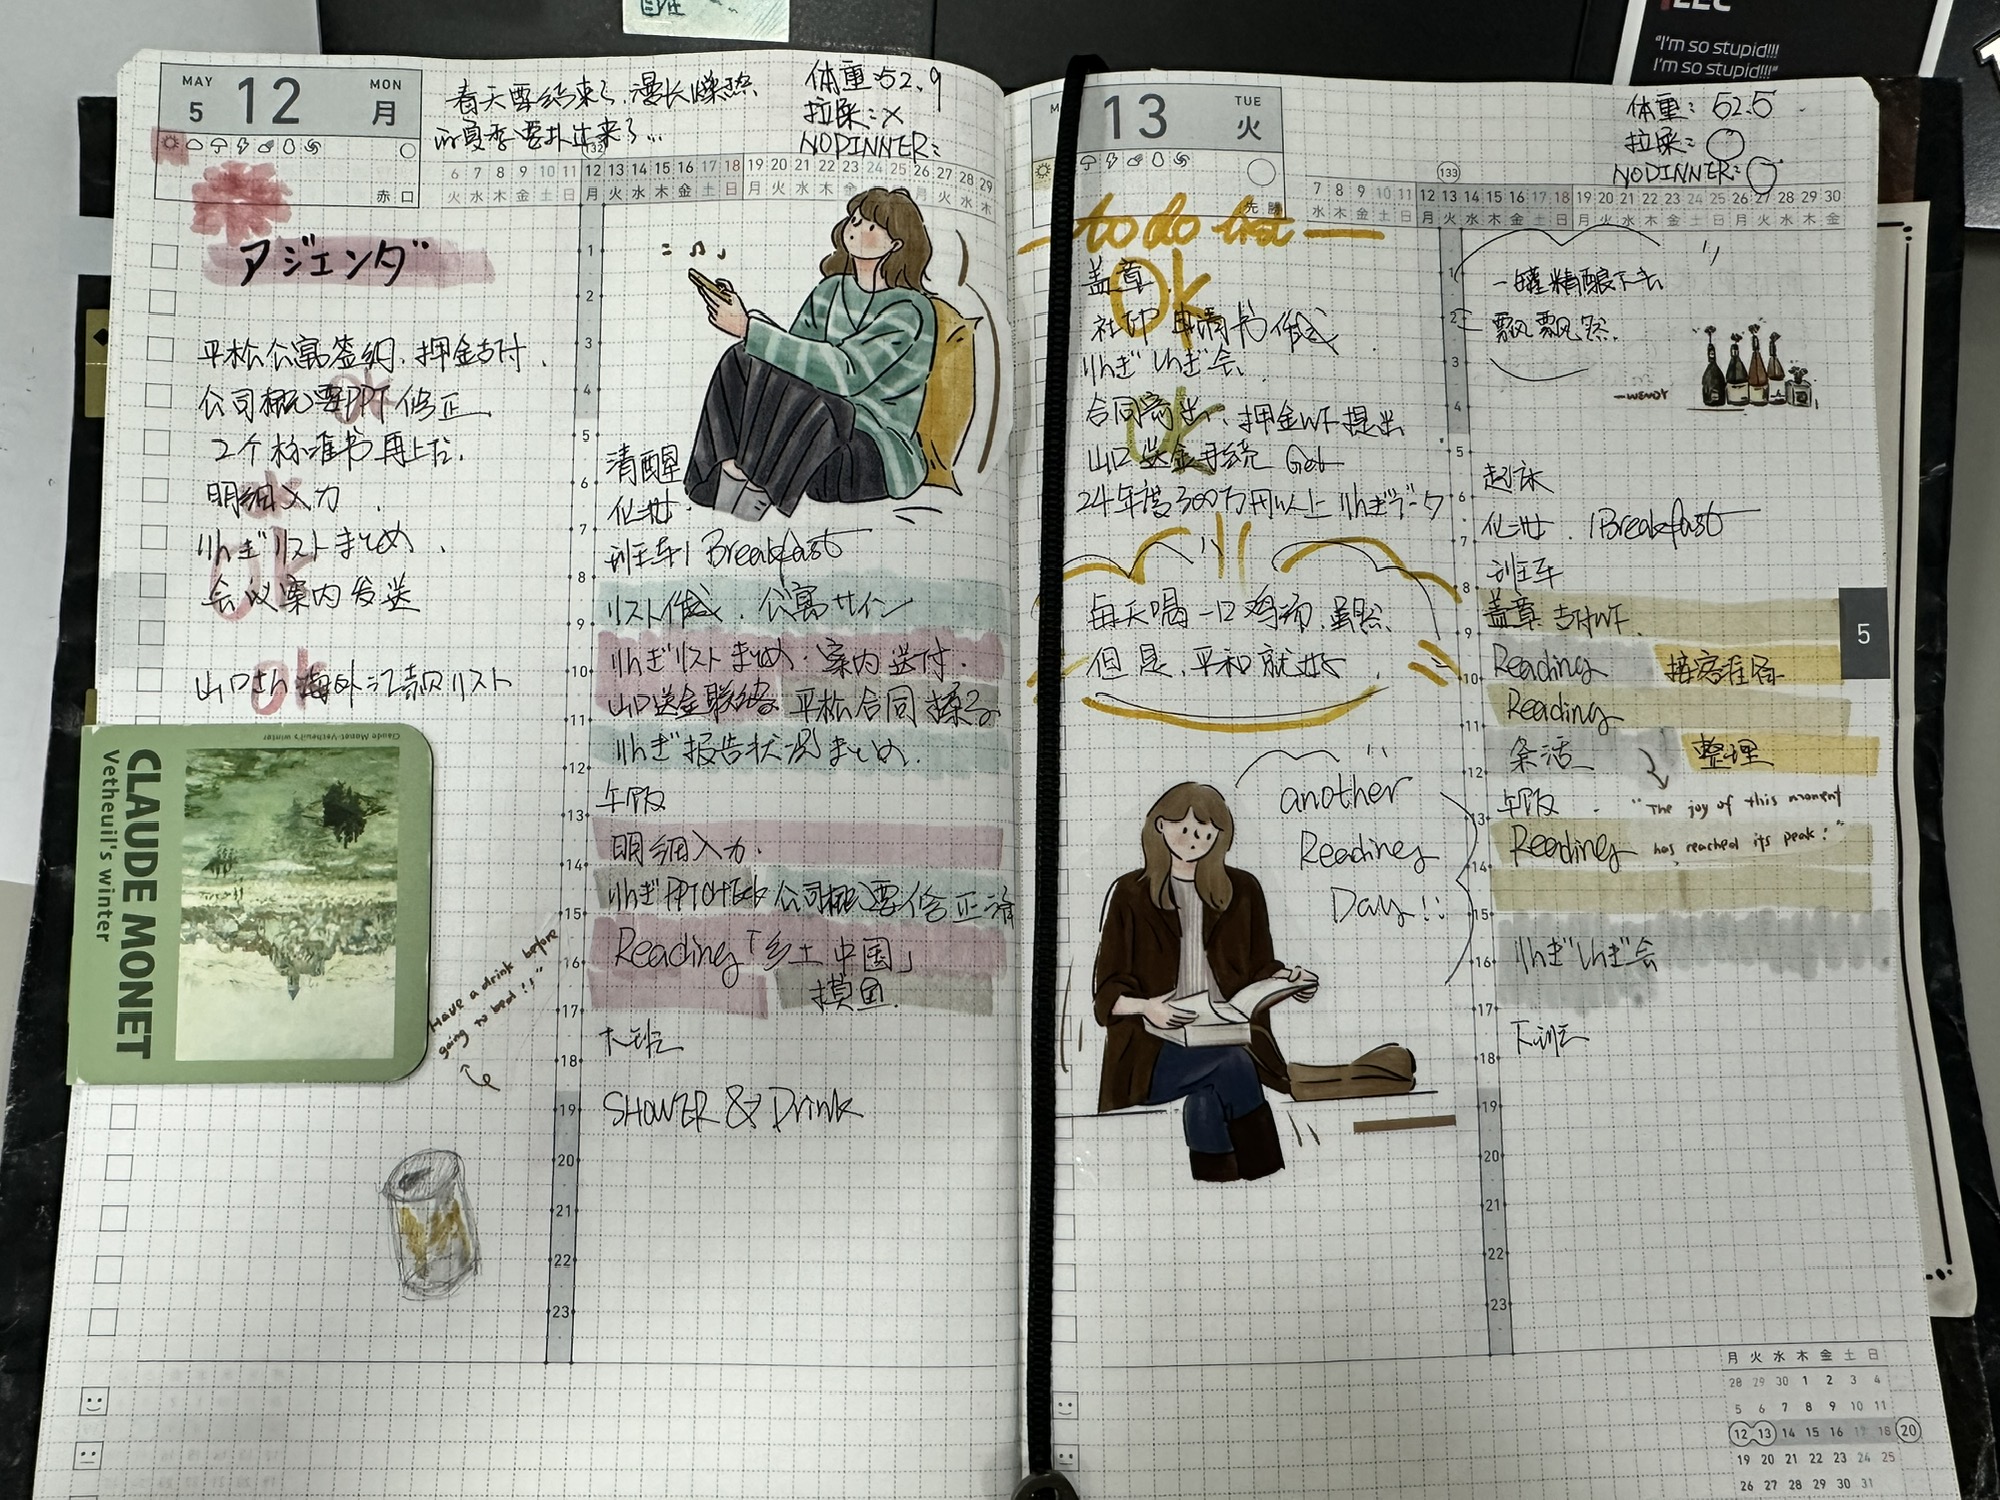 "I'm so stupid!!!
I'm so stupid!!!"
MAY
5
12
MON
月
赤口
春天要结束了,漫长燥热
的夏季要扑出来了...
体重:52.9
拉屎:×
NODINNER:
132
6 7 8 9 10 11 12 13 14 15 16 17 18 19 20 21 22 23 24 25 26 27 28 29
火 水 木 金 土 日 月 火 水 木 金 土 日 月 火 水 木 金 土 日 月 火 水 木
アジェンダ
平松公寓签约.押金支付.
公司概要PPT修正
2个标准书再上传.
明细入力.
りんぎリストまとめ.
会议案内发送
山口さん海外汇款リスト
ok
ok
ok
CLAUDE MONET
Vetheuil's winter
Claude Monet-Vetheuil's winter
Have a drink before
going to bed!!"
1
2
3
4
5
清醒
6
化妆.
7
班车 1 Breakfast
8
リスト作成.公寓サイン
9
りんぎリストまとめ.案内送付.
10
山口送金联络 平松合同
11
りんぎ报告状况まとめ.
12
午饭
13
明细入力.
14
りんぎPPTCHECK 公司概要修正
15
Reading「乡土中国」
16
摸鱼.
17
下班
18
19
SHOWER & Drink
20
21
22
23
13
TUE
火
先勝
体重:52.5
拉屎:○
NODINNER:○
133
7 8 9 10 11 12 13 14 15 16 17 18 19 20 21 22 23 24 25 26 27 28 29 30
水 木 金 土 日 月 火 水 木 金 土 日 月 火 水 木 金 土 日 月 火 水 木 金
to do list
盖章.
Ok
社印申请书作成
りんぎしんぎ会.
合同寄出.押金WF提出
ok
山口送金手续 Get
24年度300万円以上りんぎデータ
每天喝一口鸡汤.虽然.
但是.平和就好.
another
Reading
Day!!
一罐精酿下去
飘飘然.
—WENDY
1
2
3
4
5
起床
6
化妆.1Breakfast
7
班车
8
盖章 支付WF.
9
Reading 接客准备
10
Reading
11
杂活 整理
12
午饭. "The joy of this moment
13
Reading has reached its peak!"
14
15
りんぎしんぎ会
16
17
下班
18
19
20
21
22
23
5
月 火 水 木 金 土 日
28 29 30 1 2 3 4
5 6 7 8 9 10 11
12 13 14 15 16 17 18 20
19 20 21 22 23 24 25
26 27 28 29 30 31